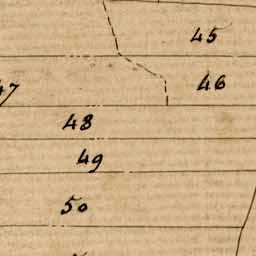 45
46
47
48
49
50